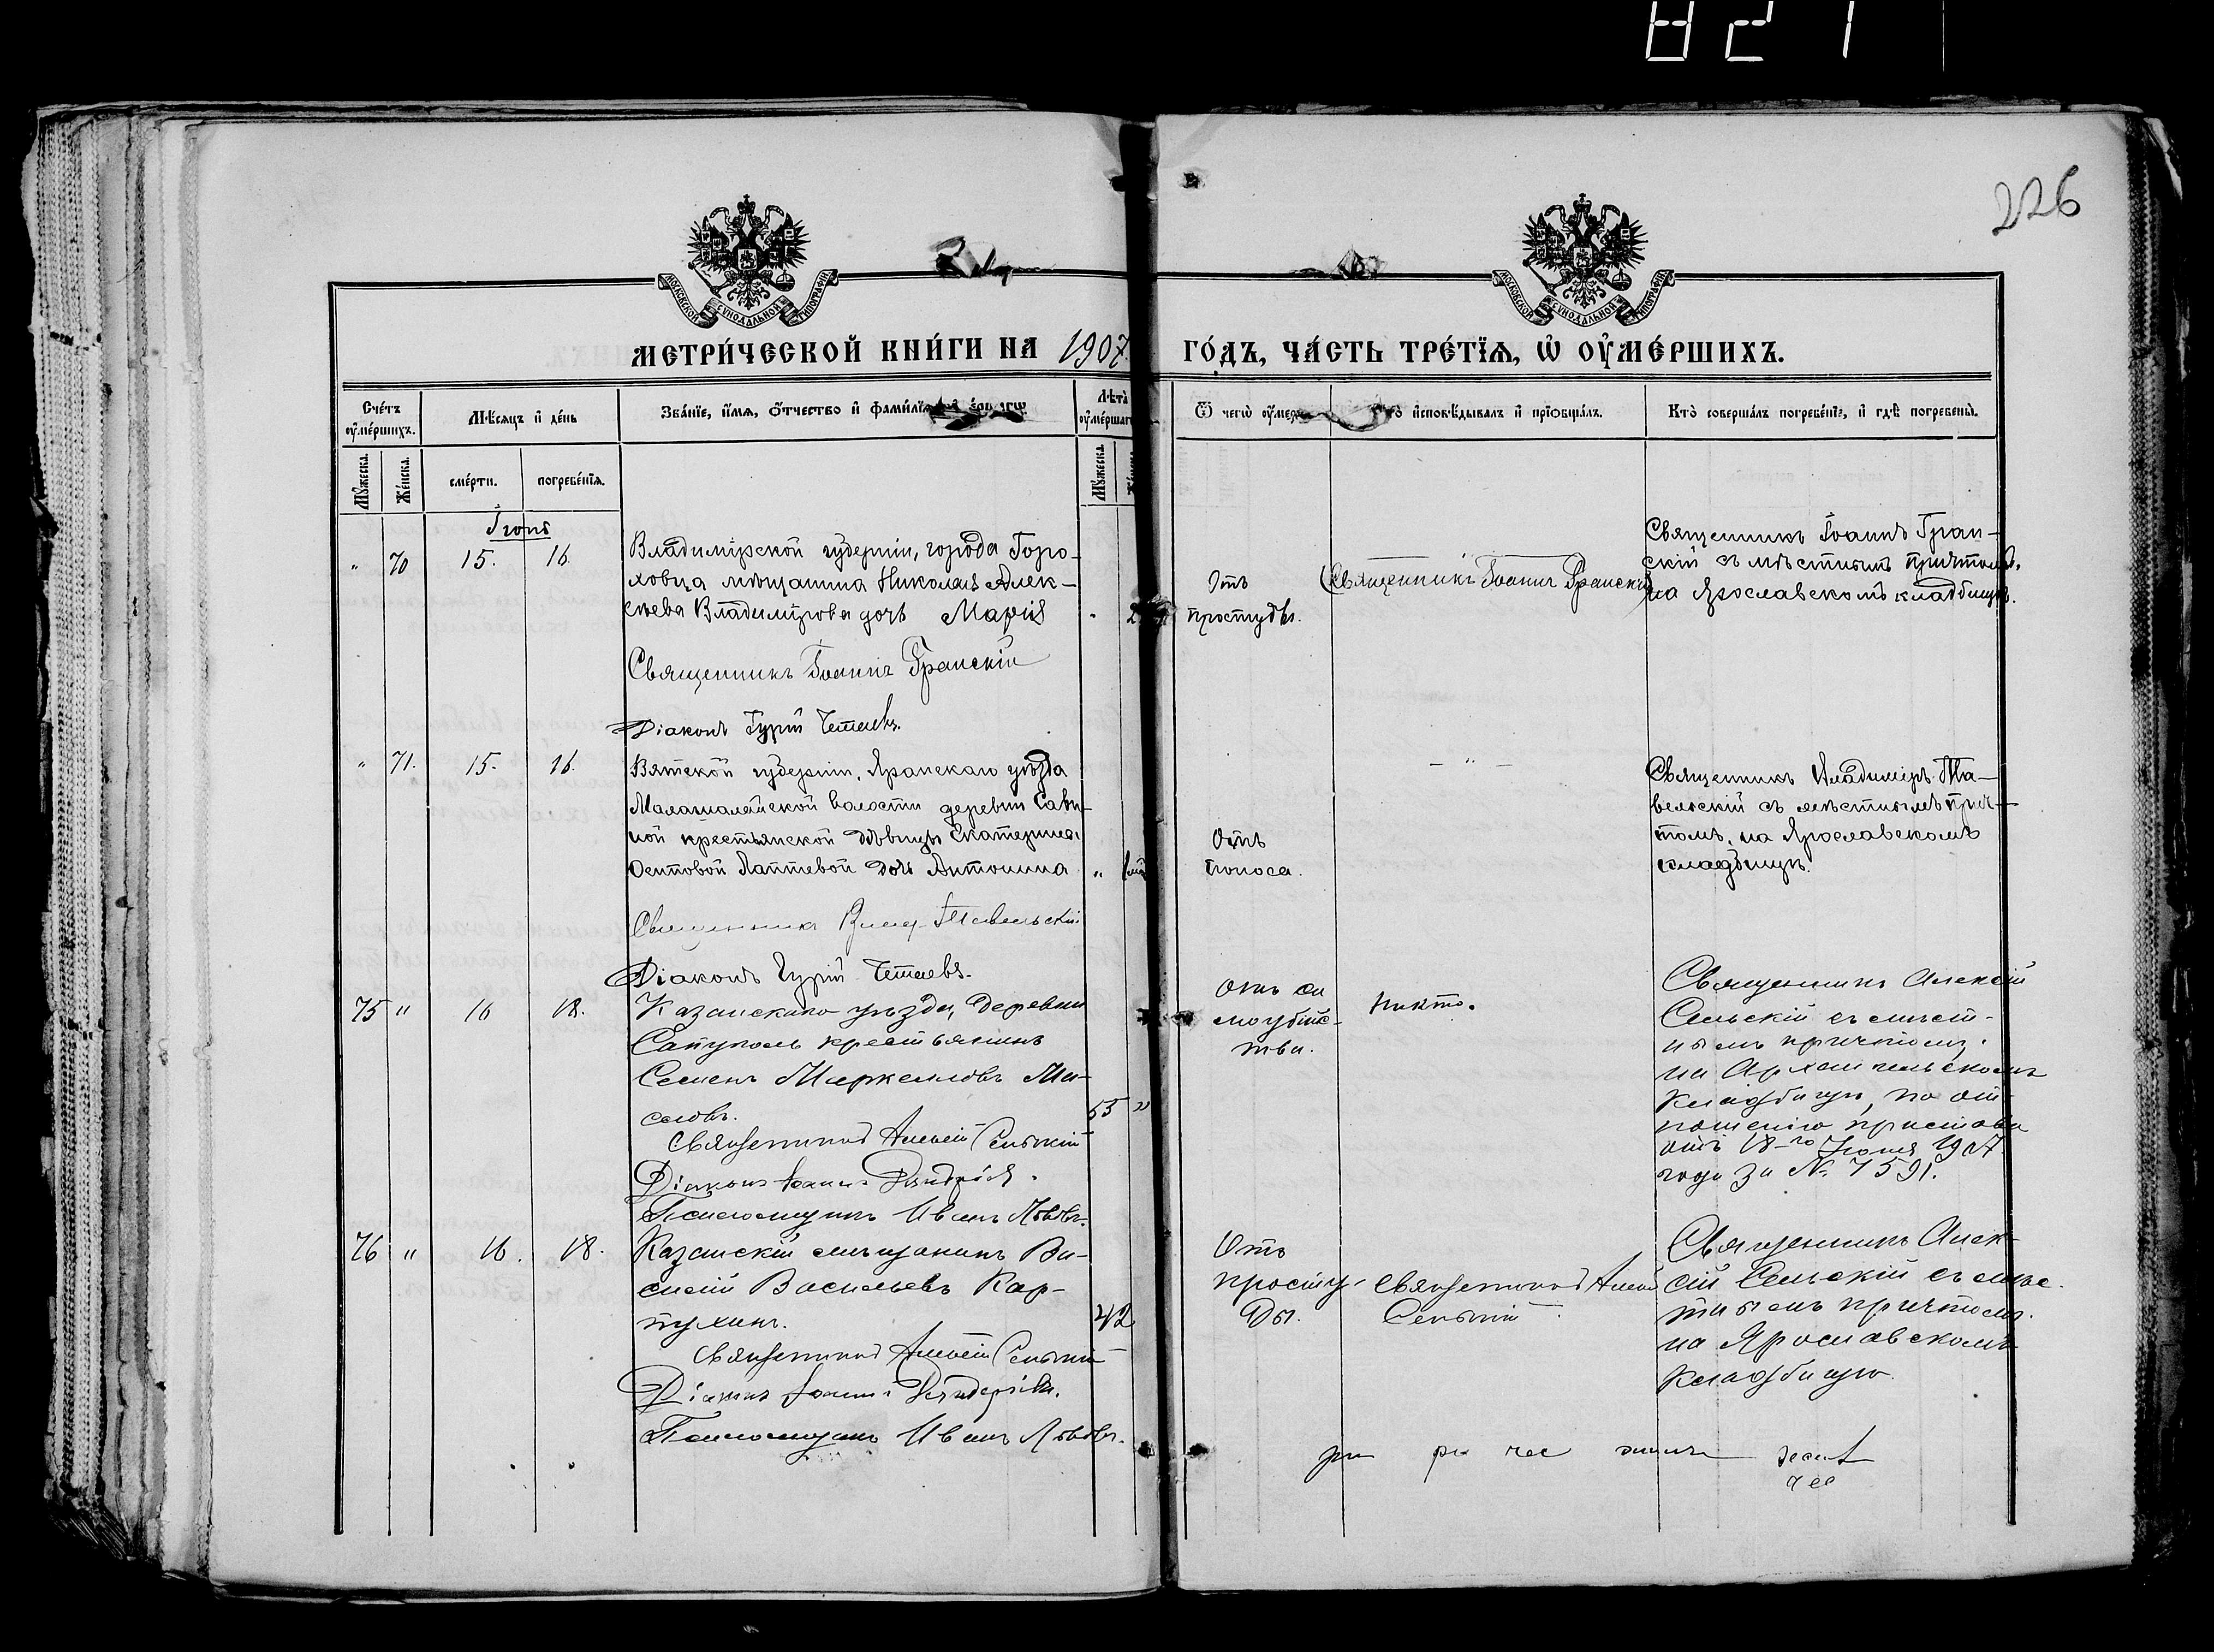 821
226
МОСКОВСКОЙ СѴНОДАЛЬНОЙ ТИПОГРАФІИ
МОСКОВСКОЙ СѴНОДАЛЬНОЙ ТИПОГРАФІИ
МЕТРИ́ЧЕСКОЙ КНИ́ГИ НА 1907
ГО́ДЪ, ЧА́СТЬ ТРЕ́ТІѦ, Ѽ ОУ҆МЕ́РШИХЪ.
Сче́тъ оу҆ме́ршихъ.
Мѣ́сяцъ и҆ де́нь
Зва́нїе, и҆́мѧ, ѻ҆́тчество и҆ фамилїѧ
Лѣта оу҆ме́ршагѡ
Мꙋ́жеска.
Же́нска.
сме́рти.
погребе́нїѧ.
Мꙋ́жеска
Ѿ чегѡ̀ оу҆мер
и҆сповѣ́дывалъ и҆ прїѡбща́лъ.
Кто̀ соверша́лъ погребе́нїе, и҆ гдѣ̀ погребены̀.
Іюнь
" 70 15. 16.
Владимірской губерніи, города Горо-
ховца мѣщанина Николая Алек-
сѣева Владимірова дочь Марія
Священникъ Іоаннъ Гранскій
Діаконъ Гурій
Отъ
простуды.
Священникъ Іоаннъ Гранскій
Священникъ Іоаннъ Гран-
скій съ мѣстнымъ причтомъ,
на Ярославскомъ кладбищѣ.
" 71. 15. 16.
Вятской губерніи, Яранскаго уѣзда
волости деревни Сави-
ной крестьянской дѣвицы Екатерины
Лаптевой дочь Антонина "
Священникъ Влад.
Діаконъ Гурій
Отъ
поноса.
- " -
Священникъ Владиміръ
съ мѣстнымъ прич-
томъ, на Ярославскомъ
кладбищѣ.
75 " 16 18.
Казанскаго уѣзда, деревни
крестьянинъ
Семенъ Маркелловъ Ма-
55 "
Священникъ Алексій Сельскій
Діаконъ Іоаннъ
Псаломщикъ Иванъ Львовъ.
Отъ са
моубійс-
тва.
Никто.
Священникъ Алексій
Сельскій съ мѣст-
нымъ причтомъ.
на Архангельскомъ
кладбищѣ, по от-
ношенію пристава
отъ 18-го Іюня 1907
года за № 7591.
76 " 16. 18.
Казанскій мѣщанинъ Ва-
силій Васильевъ Кар-
пухинъ.
42
Священникъ Алексій Сельскій
Діаконъ Іоаннъ
Псаломщикъ Иванъ Львовъ.
Отъ
просту-
ды.
Священникъ Алексій
Сельскій
Священникъ Алек-
сій Сельскій съ мѣс-
тнымъ причтомъ.
на Ярославскомъ
кладбищѣ.